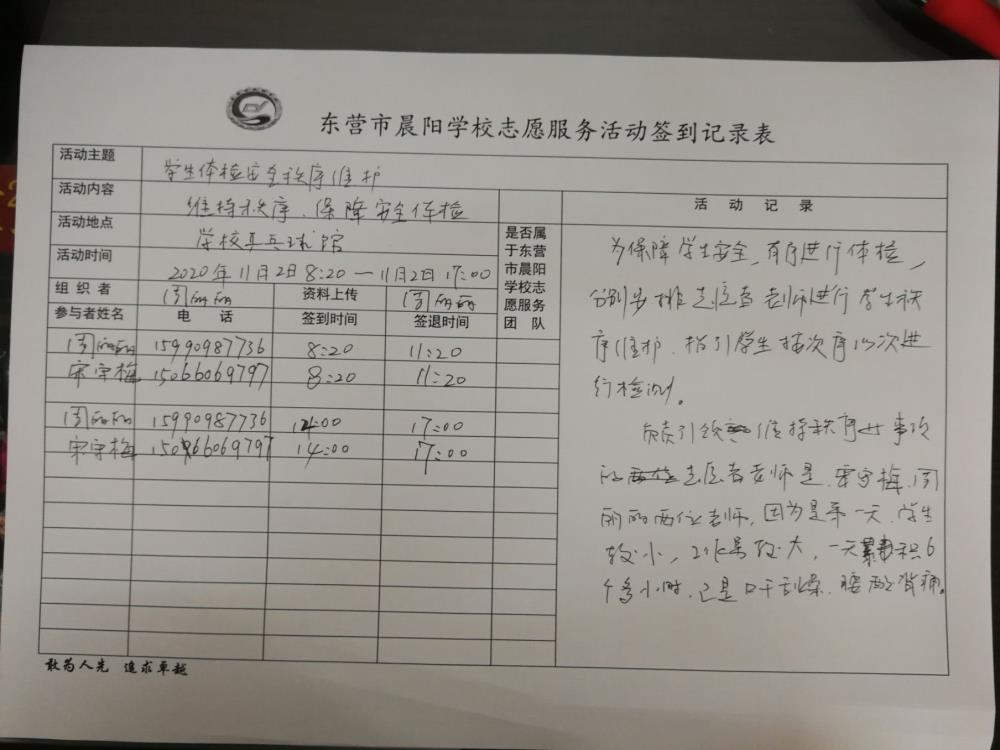 东营市晨阳学校志愿服务活动签到记录表
活动主题 学生体检安全秩序维护
活动内容 维持秩序、保障安全体检
活动地点 学校乒乓球馆
活动时间 2020年11月2日8:20—11月2日17:00
组织者 周丽丽 资料上传 周丽丽
参与者姓名 电话 签到时间 签退时间
是否属
于东营
市晨阳
学校志
愿服务
团队
周丽丽 15990987736 8:20 11:20
宋守梅 15066069797 8:20 11:20
周丽丽 15990987736 14:00 17:00
宋守梅 15066069797 14:00 17:00
活动记录
为保障学生安全,有序进行体检,
分别安排志愿者老师进行学生秩
序维护,指引学生按次序依次进
行检测。
负责引领维持秩序事项
的志愿者老师是宋守梅、周
丽丽两位老师,因为是第一天,学生
较小,工作量较大,一天累积6
个多小时,已是口干舌燥、腰酸背痛。
敢为人先 追求卓越